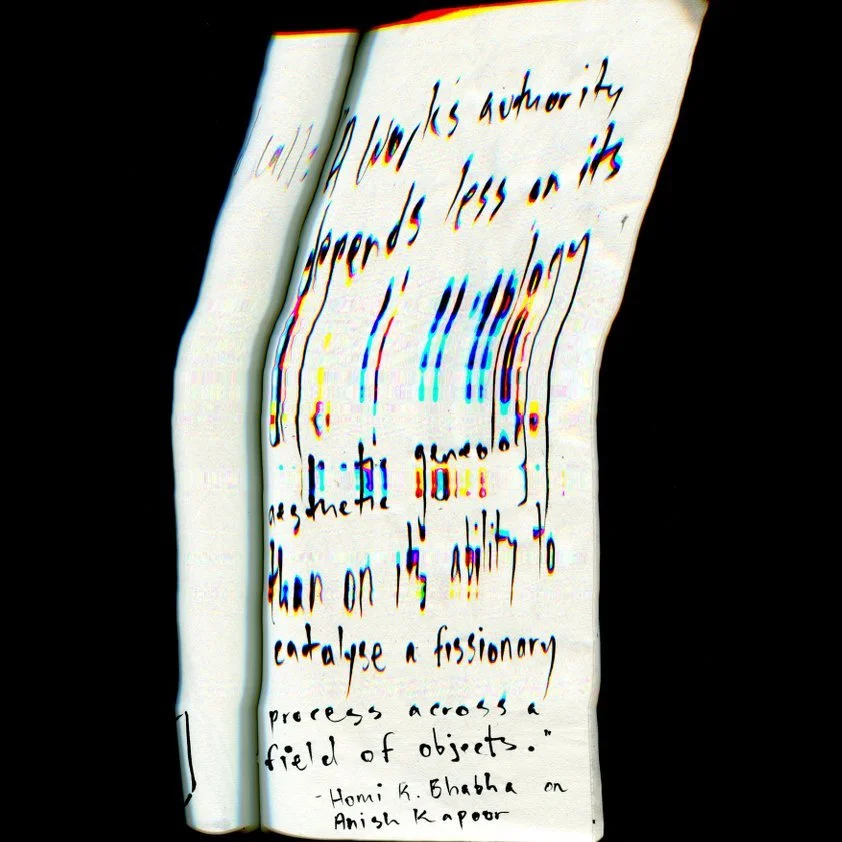 calls
"A work's authority
depends less on its
aesthetic genealogy
than on its ability to
catalyse a fissionary
process across a
field of objects."
- Homi K. Bhabha on
Anish Kapoor